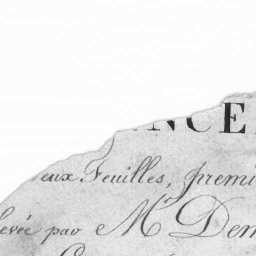 NCE
eux Feuilles, premi
levée par Mr. Dem